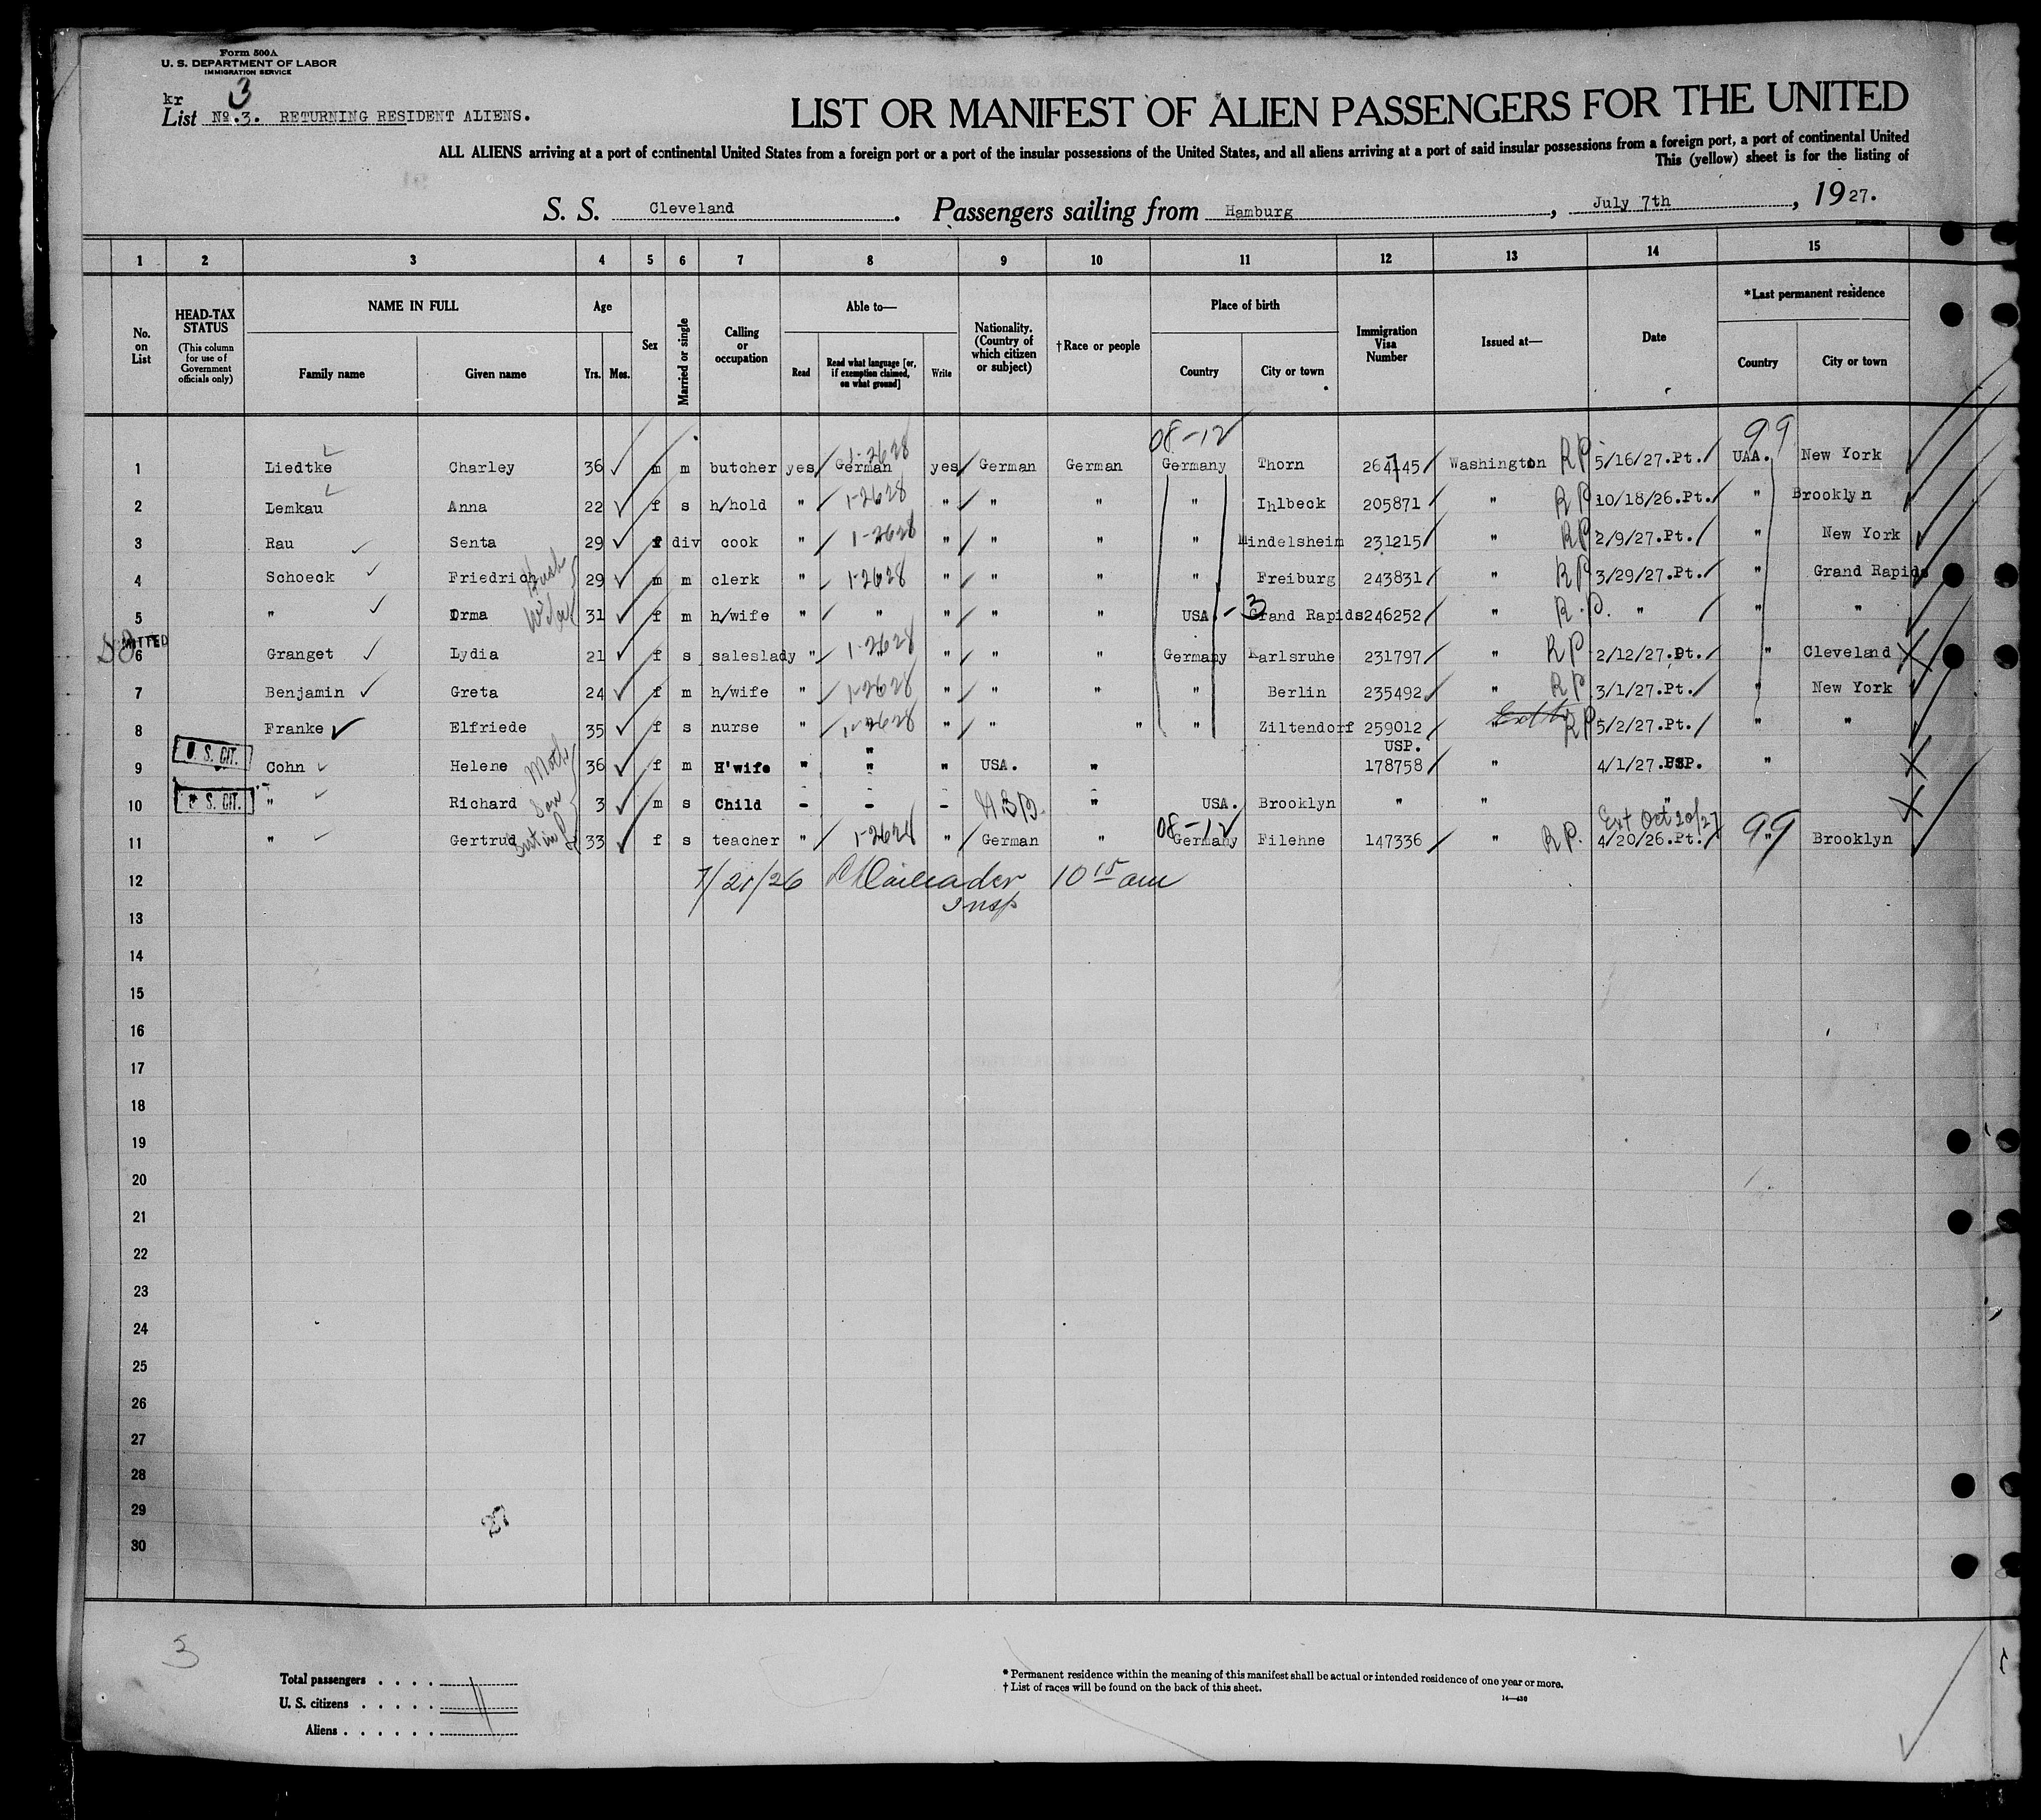 Form 500A
U. S. DEPARTMENT OF LABOR
IMMIGRATION SERVICE
kr
3
List No.3. RETURNING RESIDENT ALIENS.
LIST OR MANIFEST OF ALIEN PASSENGERS FOR THE UNITED
ALL ALIENS arriving at a port of continental United States from a foreign port or a port of the insular possessions of the United States, and all aliens arriving at a port of said insular possessions from a foreign port, a port of continental United
This (yellow) sheet is for the listing of
S. S. Cleveland. Passengers sailing from Hamburg, July 7th, 1927.
1 2 3 4 5 6 7 8 9 10 11 12 13 14 15
No. on List
HEAD-TAX STATUS
(This column for use of Government officials only)
NAME IN FULL
Family name
Given name
Age
Yrs. Mos.
Sex
Married or single
Calling or occupation
Able to—
Read
Read what language [or, if exemption claimed, on what ground]
Write
Nationality. (Country of which citizen or subject)
†Race or people
Place of birth
Country
City or town
Immigration Visa Number
Issued at—
Date
*Last permanent residence
Country
City or town
08-12 99
1 Liedtke Charley 36 m m butcher yes German 1-2628 yes German German Germany Thorn 264745 Washington RP 5/16/27.Pt. UAA. New York
2 Lemkau Anna 22 f s h/hold " 1-2628 " " " " Ihlbeck 205871 " RP 10/18/26.Pt. " Brooklyn
3 Rau Senta 29 f div cook " 1-2628 " " " " Mindelsheim 231215 " RP 2/9/27.Pt. " New York
4 Schoeck Friedrich Husb 29 m m clerk " 1-2628 " " " " Freiburg 243831 " RP 3/29/27.Pt. " Grand Rapids
5 " Orma Wife 31 f m h/wife " " " " " USA. - 3 Grand Rapids 246252 " R.P. " " "
MITTED
6 Granget Lydia 21 f s saleslady " 1-2628 " " " Germany Karlsruhe 231797 " RP 2/12/27.Pt. " Cleveland
7 Benjamin Greta 24 f m h/wife " 1-2628 " " " " Berlin 235492 " RP 3/1/27.Pt. " New York
8 Franke Elfriede 35 f s nurse " 1-2628 " " " " Ziltendorf 259012 " RP 5/2/27.Pt. " "
USP.
9 U. S. CIT. Cohn Helene Moth 36 f m H'wife " " " USA. " 178758 " 4/1/27.USP. "
10 U. S. CIT. " Richard Son 3 m s Child - - - USB. " USA. Brooklyn " " "
08-12 Ext Oct 20/27
11 " Gertrud Sist in L 33 f s teacher " 1-2628 " German " Germany Filehne 147336 " RP. 4/20/26.Pt. 99 " Brooklyn
12 7/21/26 10 15 am
Insp
13
14
15
16
17
18
19
20
21
22
23
24
25
26
27
28
29
30
27
3
Total passengers . . . .
U. S. citizens . . . . .
11
Aliens . . . . . .
* Permanent residence within the meaning of this manifest shall be actual or intended residence of one year or more.
† List of races will be found on the back of this sheet.
14—430